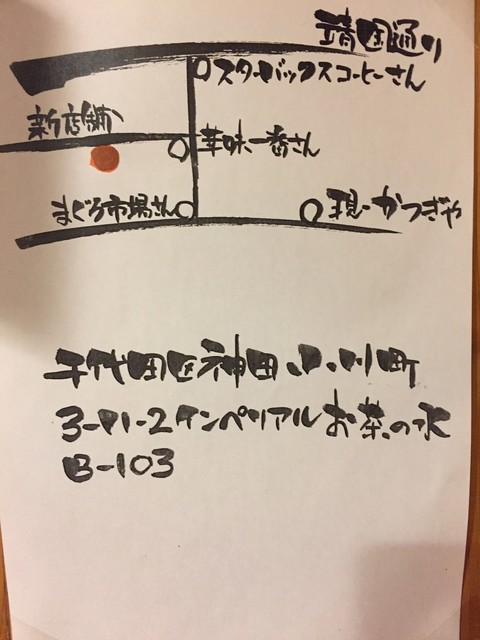 靖国通り
スターバックスコーヒーさん
新店舗
華味一番さん
まぐろ市場さん
現・かつぎや
千代田区神田小川町
3-11-2インペリアルお茶の水
B-103